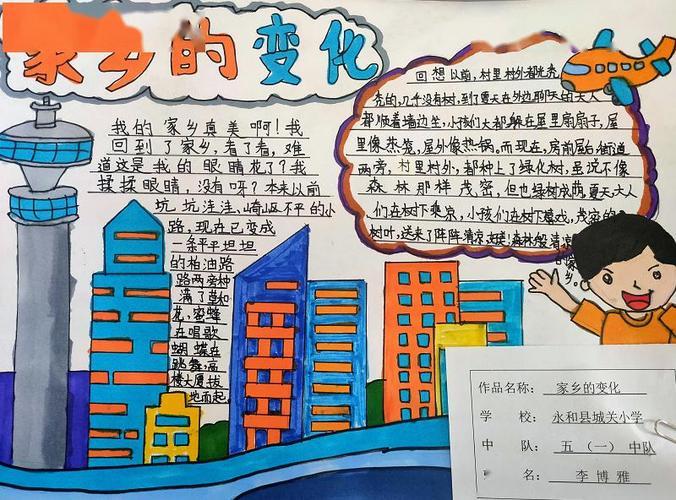 家乡的变化
我的家乡真美啊!我
回到了家乡,看了看,难
道这是我的眼睛花了?我
揉揉眼睛,没有呀?本来以前
坑坑洼洼、崎岖不平的小
路,现在已变成
一条平平坦坦
的柏油路
路两旁种
满了草和
花,蜜蜂
在唱歌
蝴蝶在
跳舞,高
楼大厦拔
地而起。
回想以前,村里村外都光秃
秃的,几乎没有树,到了夏天在外边聊天的大人
都顺着墙边坐,小孩们大都躲在屋里扇扇子,屋
里像蒸笼,屋外像热锅。而现在,房前屋后街道
两旁,村里村外,都种上了绿化树,虽说不像
森林那样茂密,但也绿树成荫,夏天大人
们在树下乘凉,小孩们在树下嬉戏,茂密的
树叶,送来了阵阵清凉
森林般清凉
的家
乡。
作品名称: 家乡的变化
学 校: 永和县城关小学
中 队: 五 (一) 中队
名: 李博雅